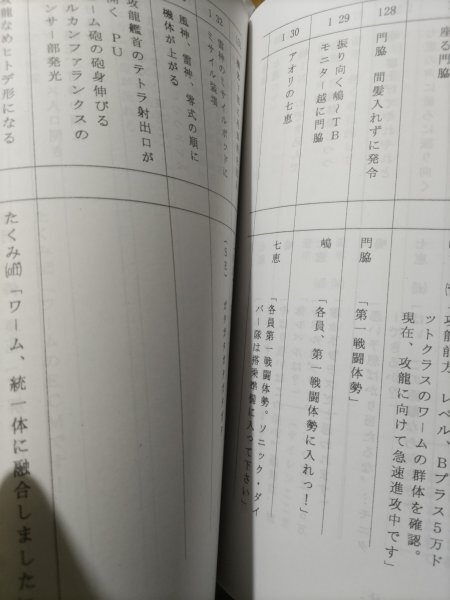 座る門脇
128
門脇 間髪入れずに発令
129
振り向く嶋~TB
モニター越に門脇
130
アオリの七恵
レベル、Bプラス5万ド
ットクラスのワームの群体を確認。
現在、攻龍に向けて急速進攻中です」
門脇「第一戦闘体勢」
嶋「各員、第一戦闘体勢に入れっ!」
七恵「各員第一戦闘体勢。ソニック・ダイ
バー隊は搭乗準備に入って下さい」
132
雷神のミサイルポッドに
ミサイル装填
風神、雷神、零式の順に
機体が上がる
攻龍艦首のテトラ射出口が
開く PU
ーム砲の砲身伸びる
ルカンファランクスの
ンサー部発光
攻龍なめヒトデ形になる
(SE)
たくみ(off)「ワーム、統一体に融合しました